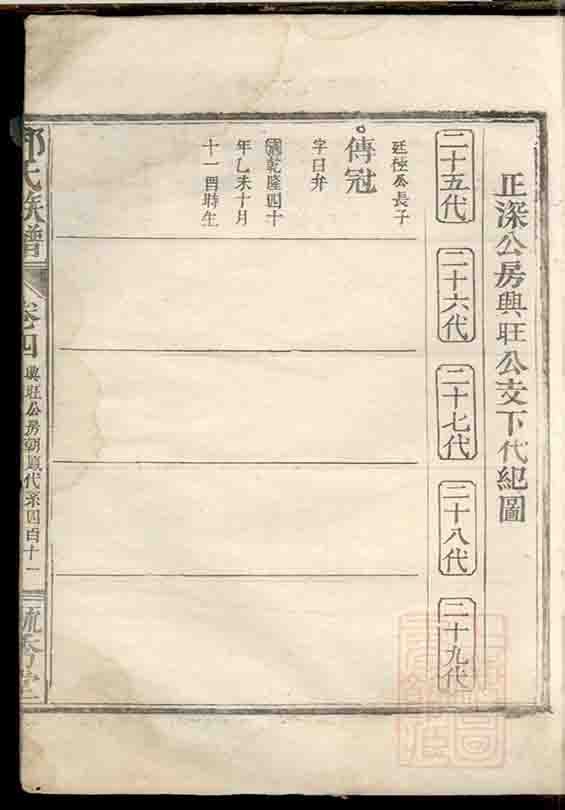 正深公房興旺公支下代紀圖
二十五代
二十六代
二十七代
二十八代
二十九代
廷極公長子
傳冠
字曰弁
國乾隆四十
年乙未十月
十一酉時生
氏族譜
卷四
興旺公房朝鳳代系四百十一